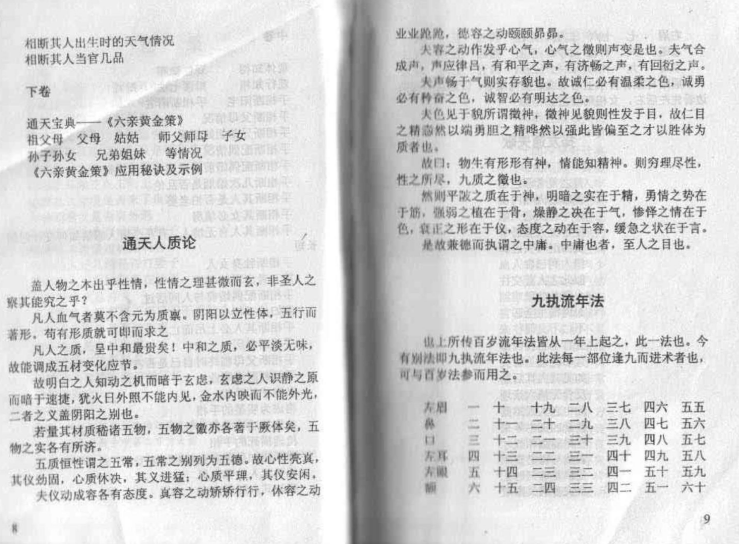 相断其人出生时的天气情况
相断其人当官几品
下卷
通天宝典——《六亲黄金策》
祖父母 父母 姑姑 师父师母 子女
孙子孙女 兄弟姐妹 等情况
《六亲黄金策》应用秘诀及示例
通天人质论
盖人物之木出乎性情，性情之理甚微而玄，非圣人之
察其能究之乎？
凡人血气者莫不含元为质禀。阴阳以立性体，五行而
著形。苟有形质就可即而求之
凡人之质，呈中和最贵矣！中和之质，必平淡无味，
故能调成五材变化应节。
故明白之人知动之机而暗于玄虑，玄虑之人识静之原
而暗于速捷，犹火日外照不能内见，金水内映而不能外光，
二者之义盖阴阳之别也。
若量其材质嵇诸五物，五物之徽亦各著于厥体矣，五
物之实各有所济。
五质恒性谓之五常，五常之别列为五德。故心性亮真，
其仪劲固，心质休决，其义进猛；心质平理，其仪安闲，
夫仪动成容各有态度。真容之动矫矫行行，休容之动
8
业业跄跄，德容之动颐颐昴昴。
夫容之动作发乎心气，心气之微则声变是也。夫气合
成声，声应律吕，有和平之声，有济畅之声，有回衍之声。
夫声畅于气则实存貌也。故诚仁必有温柔之色，诚勇
必有矜奋之色，诚智必有明达之色。
夫色见于貌所谓徵神，徵神见貌则性发于目，故仁目
之精悫然以端勇胆之精晔然以强此皆偏至之才以胜体为
质者也。
故曰：物生有形形有神，情能知精神。则穷理尽性，
性之所尽，九质之徵也。
然则平陂之质在于神，明暗之实在于精，勇情之势在
于筋，强弱之植在于骨，燥静之决在于气，惨怿之情在于
色，衰正之形在于仪，态度之动在于容，缓急之状在于言。
是故兼德而执谓之中庸。中庸也者，至人之目也。
九执流年法
也上所传百岁流年法皆从一年上起之，此一法也。今
有别法即九执流年法也。此法每一部位逢九而进术者也，
可与百岁法参而用之。
左眉 一 十 十九 二八 三七 四六 五五
鼻 二 十一 二十 二九 三八 四七 五六
口 三 十二 二一 三十 三九 四八 五七
左耳 四 十三 二二 三一 四十 四九 五八
左眼 五 十四 二三 三二 四一 五十 五九
额 六 十五 二四 三三 四二 五一 六十
9